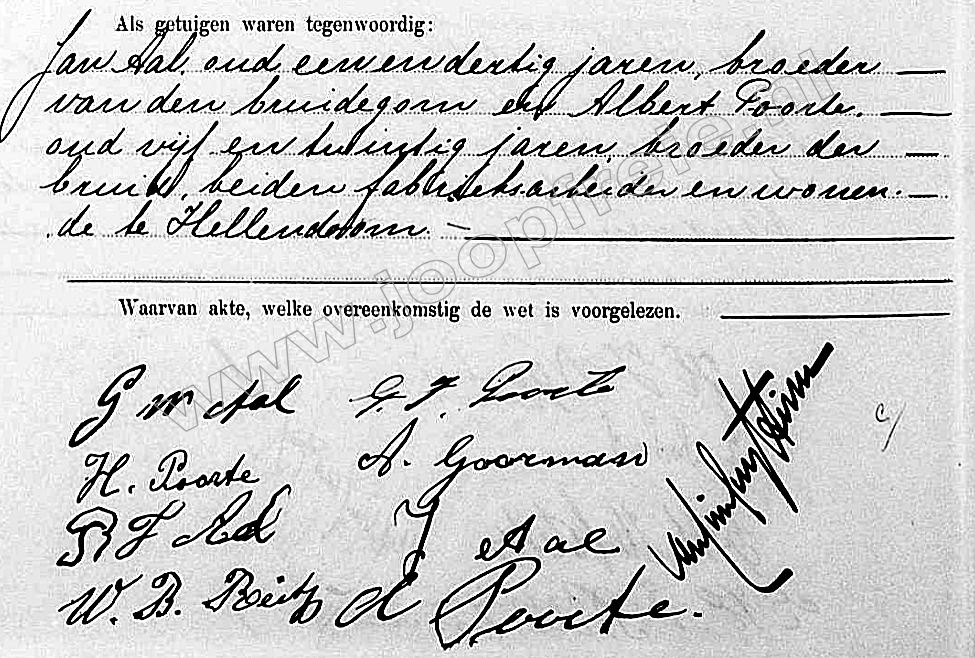 Als getuigen waren tegenwoordig:
Jan Aal. oud eenendertig jaren, broeder
van den bruidegom en Albert Poorte.
oud vijf en twintig jaren, broeder der
bruid, beiden fabrieksarbeider en wonen.
de te Hellendoorn.
Waarvan akte, welke overeenkomstig de wet is voorgelezen.
G W Aal G. J. Poorte
H. Poorte A. Goorman
J Aal
W. B. Reitz A Poorte.